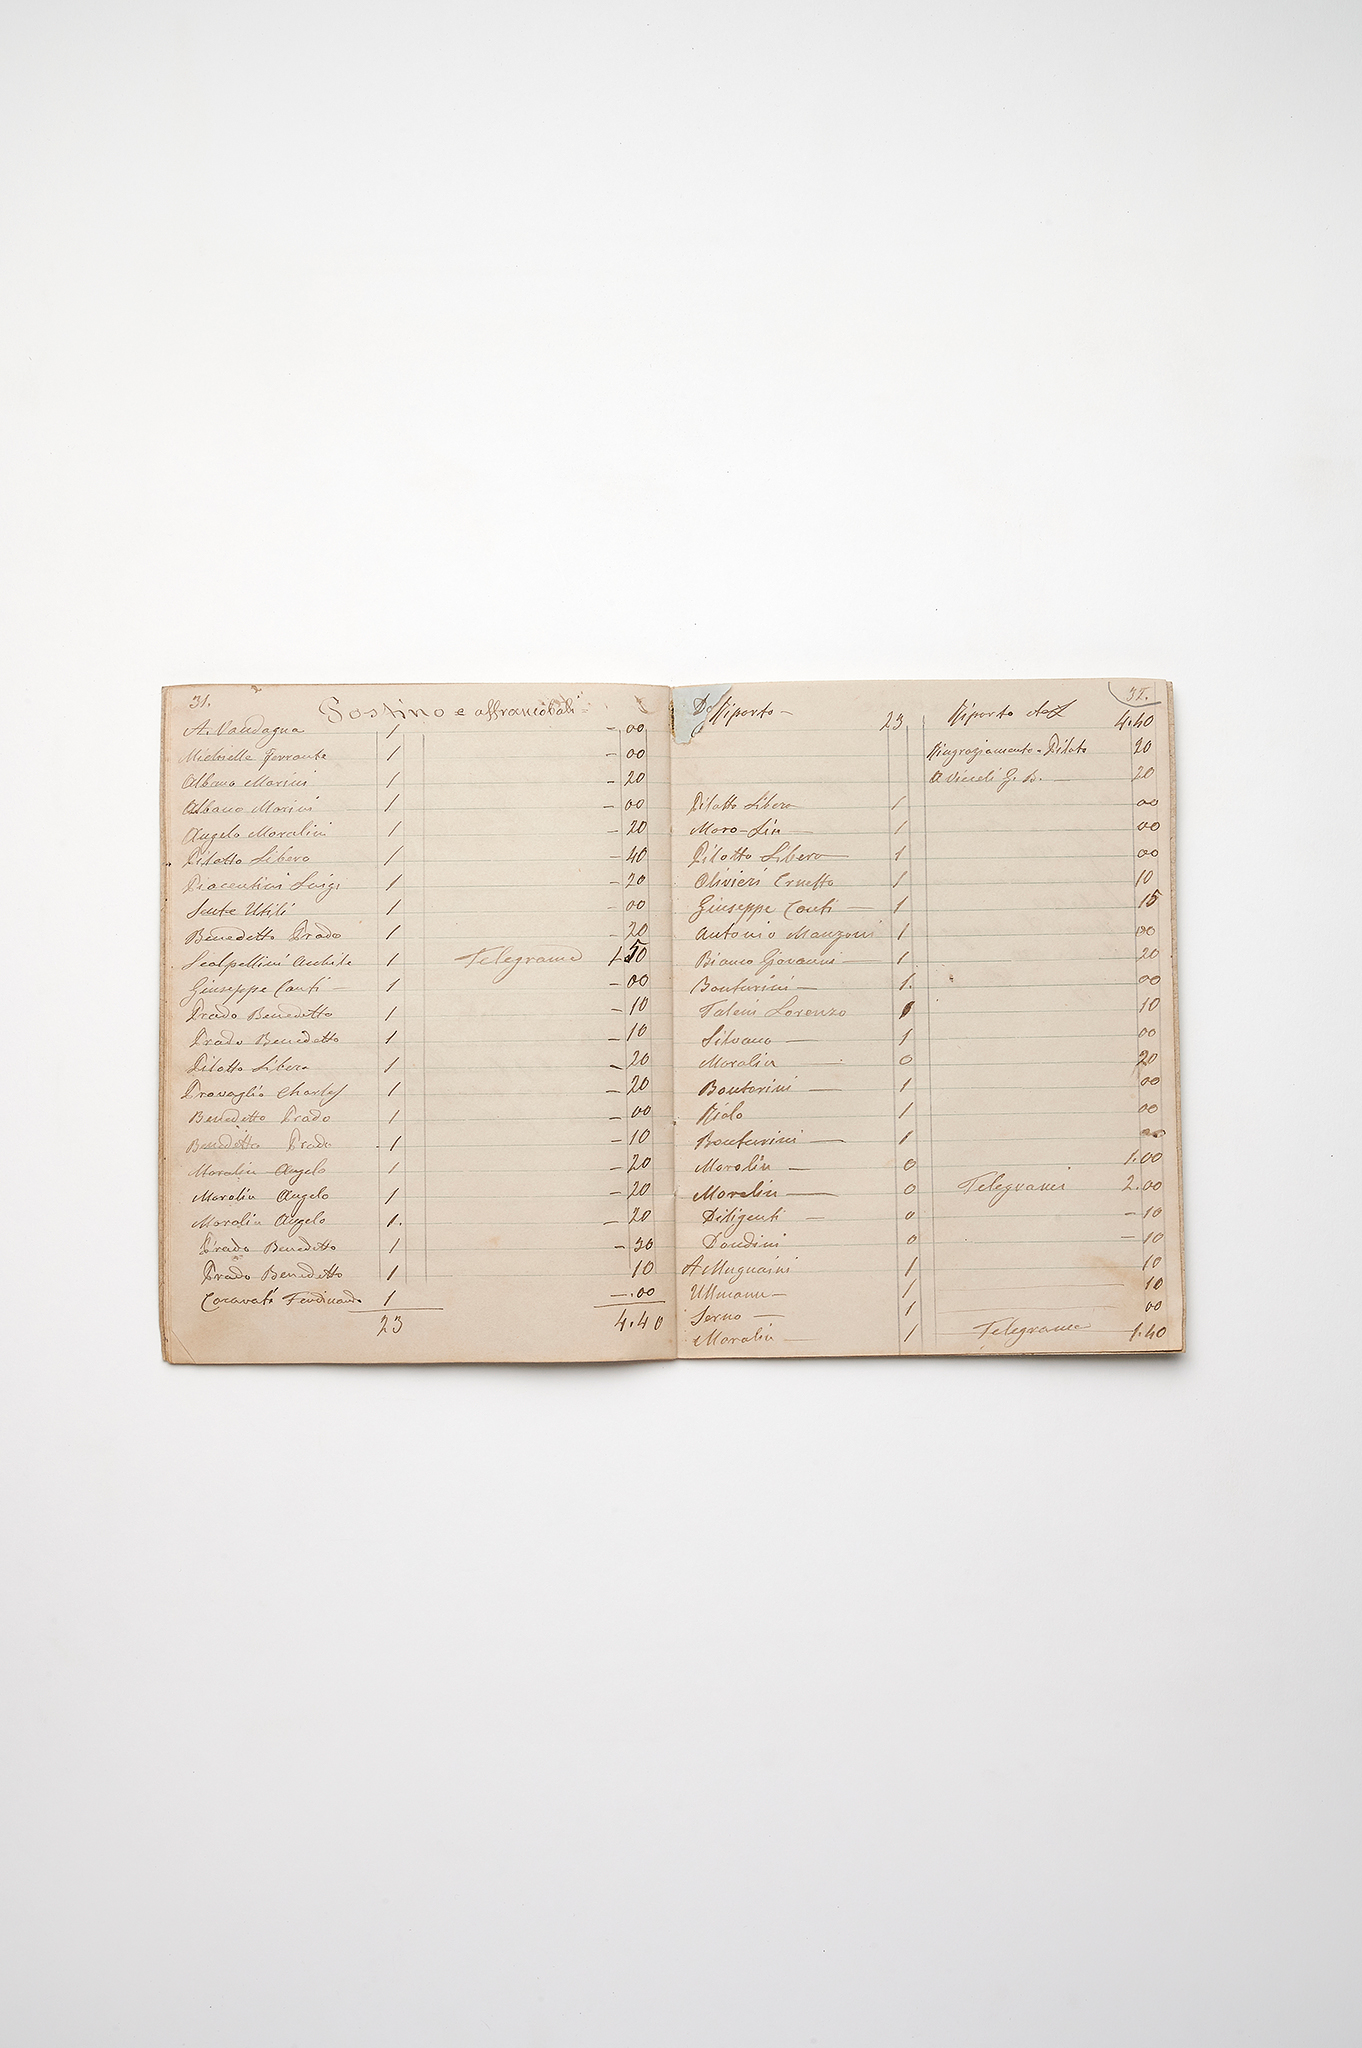 31.
Postino e affrancobolli
A. Vandagna 1 - 00
Michielle Ferrante 1 - 00
Albano Morini 1 - 20
Albano Morini 1 - 00
Angelo Moralin 1 - 20
Pilotto Libero 1 - 40
Piacentini Luigi 1 - 20
Sante Utili 1 - 00
Benedetto Prado 1 - 20
Scalpellini Achile 1 Telegrame 1.50
Giuseppe Conti - 1 - 00
Prado Benedetto 1 - 10
Prado Benedetto 1 - 10
Pilotto Libero 1 - 20
Travaglio Charles 1 - 20
Benedetto Prado 1 - 00
Benedetto Prado 1 - 10
Moralin Angelo 1 - 20
Moralin Angelo 1 - 20
Moralin Angelo 1. - 20
Prado Benedetto 1 - 30
Prado Benedetto 1 10
Caravati Ferdinando 1 -.00
23 4.40
32.
Riporto - 23 Riporto 4.40
Ringraziamento - Piloto 20
A Vicieli G. B. 20
Pilotto Libero 1 00
Moro-Lin 1 00
Pilotto Libero 1 00
Olivieri Ernesto 1 10
Giuseppe Conti - 1 15
Antonio Manzoni 1 00
Bianco Giovanni - 1 20
Bonturini - 1. 00
Taleni Lorenzo 1 10
Silvano - 1 00
Moralin 0 20
Bonturini - 1 00
Riolo 1 00
Bonturini - 1
Moralin - 0 1.00
Moralin - 0 Telegrami 2.00
Diligenti - 0 - 10
Dondini 0 - 10
A Mugnaini 1 10
Ullmann - 1 10
Serno - 1 00
Moralin - 1 Telegrame 1.40